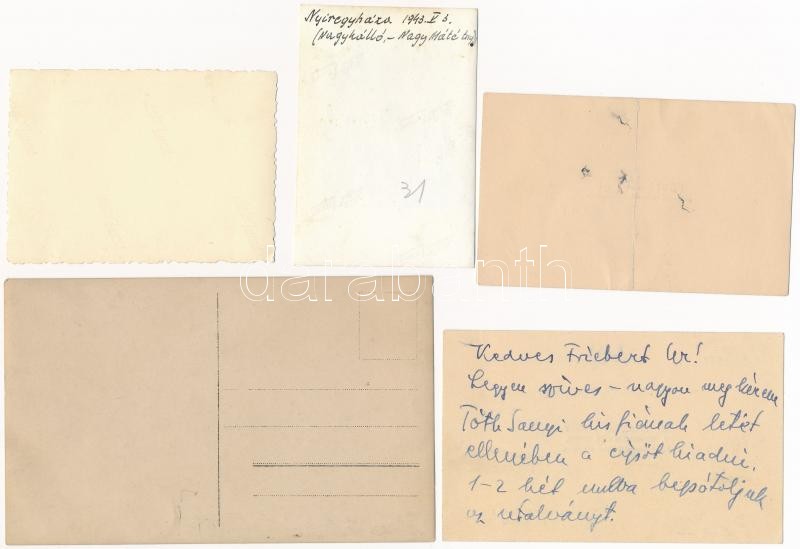 Nyíregyháza 1943. V. 3.
(Nagykálló, – Nagy Máté
31
darabanth
Kedves Friebert Úr!
Legyen szíves – nagyon megkérem
Tóth Sanyi kisfiának letét
ellenében a cipőt kiadni.
1–2 hét mulva bepótoljuk
az utalványt.